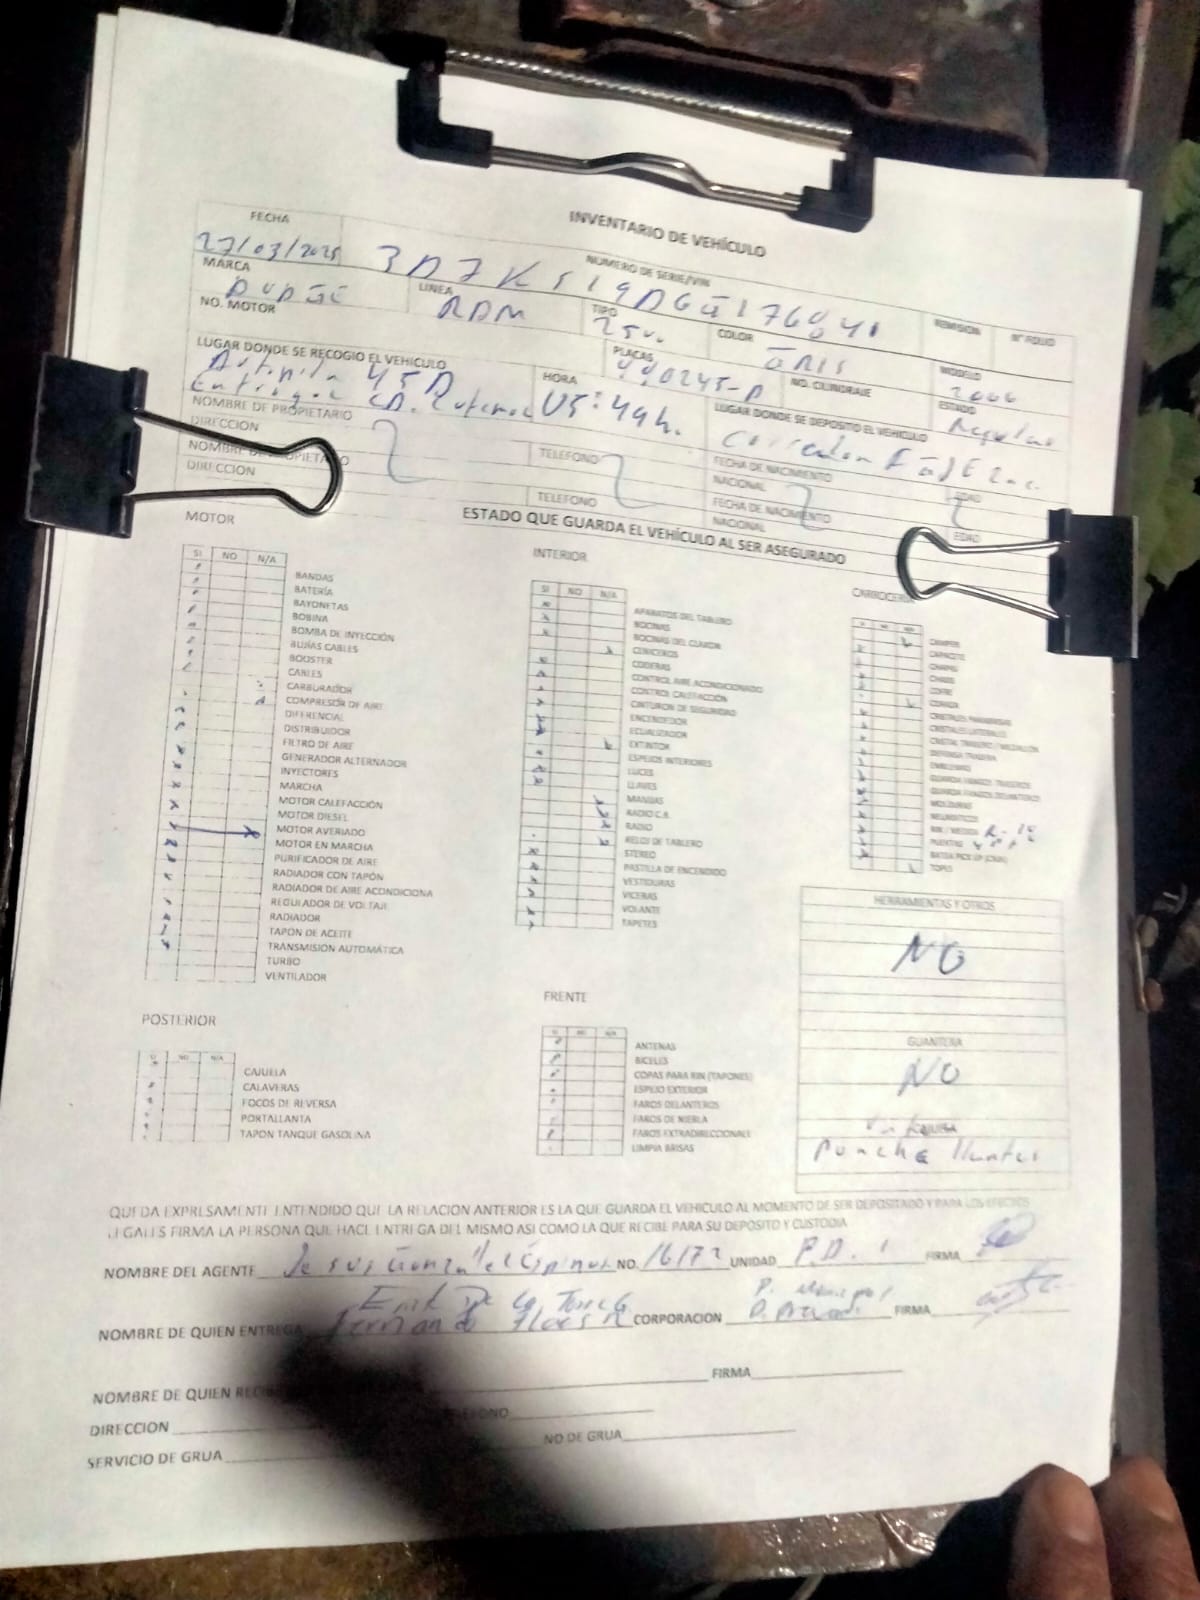 INVENTARIO DE VEHÍCULO
FECHA
NUMERO DE SERIE/VIN
REMISION
N° FOLIO
27/03/2025
MARCA
LINEA
RAM
TIPO
2500
COLOR
GRIS
MODELO
2006
NO. MOTOR
PLACAS
NO. CILINDRAJE
ESTADO
Regular
LUGAR DONDE SE RECOGIO EL VEHICULO
45D
HORA
05:49h.
LUGAR DONDE SE DEPOSITO EL VEHICULO
NOMBRE DE PROPIETARIO
TELEFONO
FECHA DE NACIMIENTO
EDAD
DIRECCION
NACIONAL
NOMBRE DE PROPIETARIO
TELEFONO
FECHA DE NACIMIENTO
EDAD
DIRECCION
NACIONAL
ESTADO QUE GUARDA EL VEHÍCULO AL SER ASEGURADO
MOTOR
SI NO N/A
BANDAS
BATERÍA
BAYONETAS
BOBINA
BOMBA DE INYECCIÓN
BUJÍAS CABLES
BOOSTER
CABLES
CARBURADOR
COMPRESOR DE AIRE
DIFERENCIAL
DISTRIBUIDOR
FILTRO DE AIRE
GENERADOR ALTERNADOR
INYECTORES
MARCHA
MOTOR CALEFACCIÓN
MOTOR DIESEL
MOTOR AVERIADO
MOTOR EN MARCHA
PURIFICADOR DE AIRE
RADIADOR CON TAPÓN
RADIADOR DE AIRE ACONDICIONA
REGULADOR DE VOLTAJE
RADIADOR
TAPON DE ACEITE
TRANSMISION AUTOMÁTICA
TURBO
VENTILADOR
INTERIOR
SI NO N/A
APARATOS DEL TABLERO
BOCINAS
BOCINAS DEL CLAXON
CENICEROS
CODERAS
CONTROL AIRE ACONDICIONADO
CONTROL CALEFACCIÓN
CINTURON DE SEGURIDAD
ENCENDEDOR
ECUALIZADOR
EXTINTOR
ESPEJOS INTERIORES
LUCES
LLAVES
MANIJAS
RADIO C.B.
RADIO
RELOJ DE TABLERO
STEREO
PASTILLA DE ENCENDIDO
VESTIDURAS
VICERAS
VOLANTE
TAPETES
CAMPER
CAPACETE
CHAPAS
CHASIS
COFRE
CRISTALES PARABRISAS
CRISTALES LATERALES
CRISTAL TRASERO / MEDALLÓN
DEFENSA TRASERA
EMBLEMAS
GUARDA FANGOS TRASEROS
GUARDA FANGOS DELANTEROS
MOLDURAS
NEUMATICOS
RIN / MEDIDA
PUERTAS
BATEA PICK UP (CAJA)
TOPES
HERRAMIENTAS Y OTROS
NO
GUANTERA
NO
POSTERIOR
SI NO N/A
CAJUELA
CALAVERAS
FOCOS DE REVERSA
PORTALLANTA
TAPON TANQUE GASOLINA
FRENTE
SI NO N/A
ANTENAS
BICELES
COPAS PARA RIN (TAPONES)
ESPEJO EXTERIOR
FAROS DELANTEROS
FAROS DE NIEBLA
FAROS EXTRADIRECCIONALE
LIMPIA BRISAS
QUEDA EXPRESAMENTE ENTENDIDO QUE LA RELACION ANTERIOR ES LA QUE GUARDA EL VEHICULO AL MOMENTO DE SER DEPOSITADO Y PARA LOS EFECTOS
LEGALES FIRMA LA PERSONA QUE HACE ENTREGA DEL MISMO ASI COMO LA QUE RECIBE PARA SU DEPOSITO Y CUSTODIA
NOMBRE DEL AGENTE Jesus Gonzalez Espinosa NO. 16172 UNIDAD P.D. 1 FIRMA
Erik De La Torre
NOMBRE DE QUIEN ENTREGA Fernando Flores CORPORACION FIRMA
NOMBRE DE QUIEN FIRMA
DIRECCION
SERVICIO DE GRUA NO DE GRUA